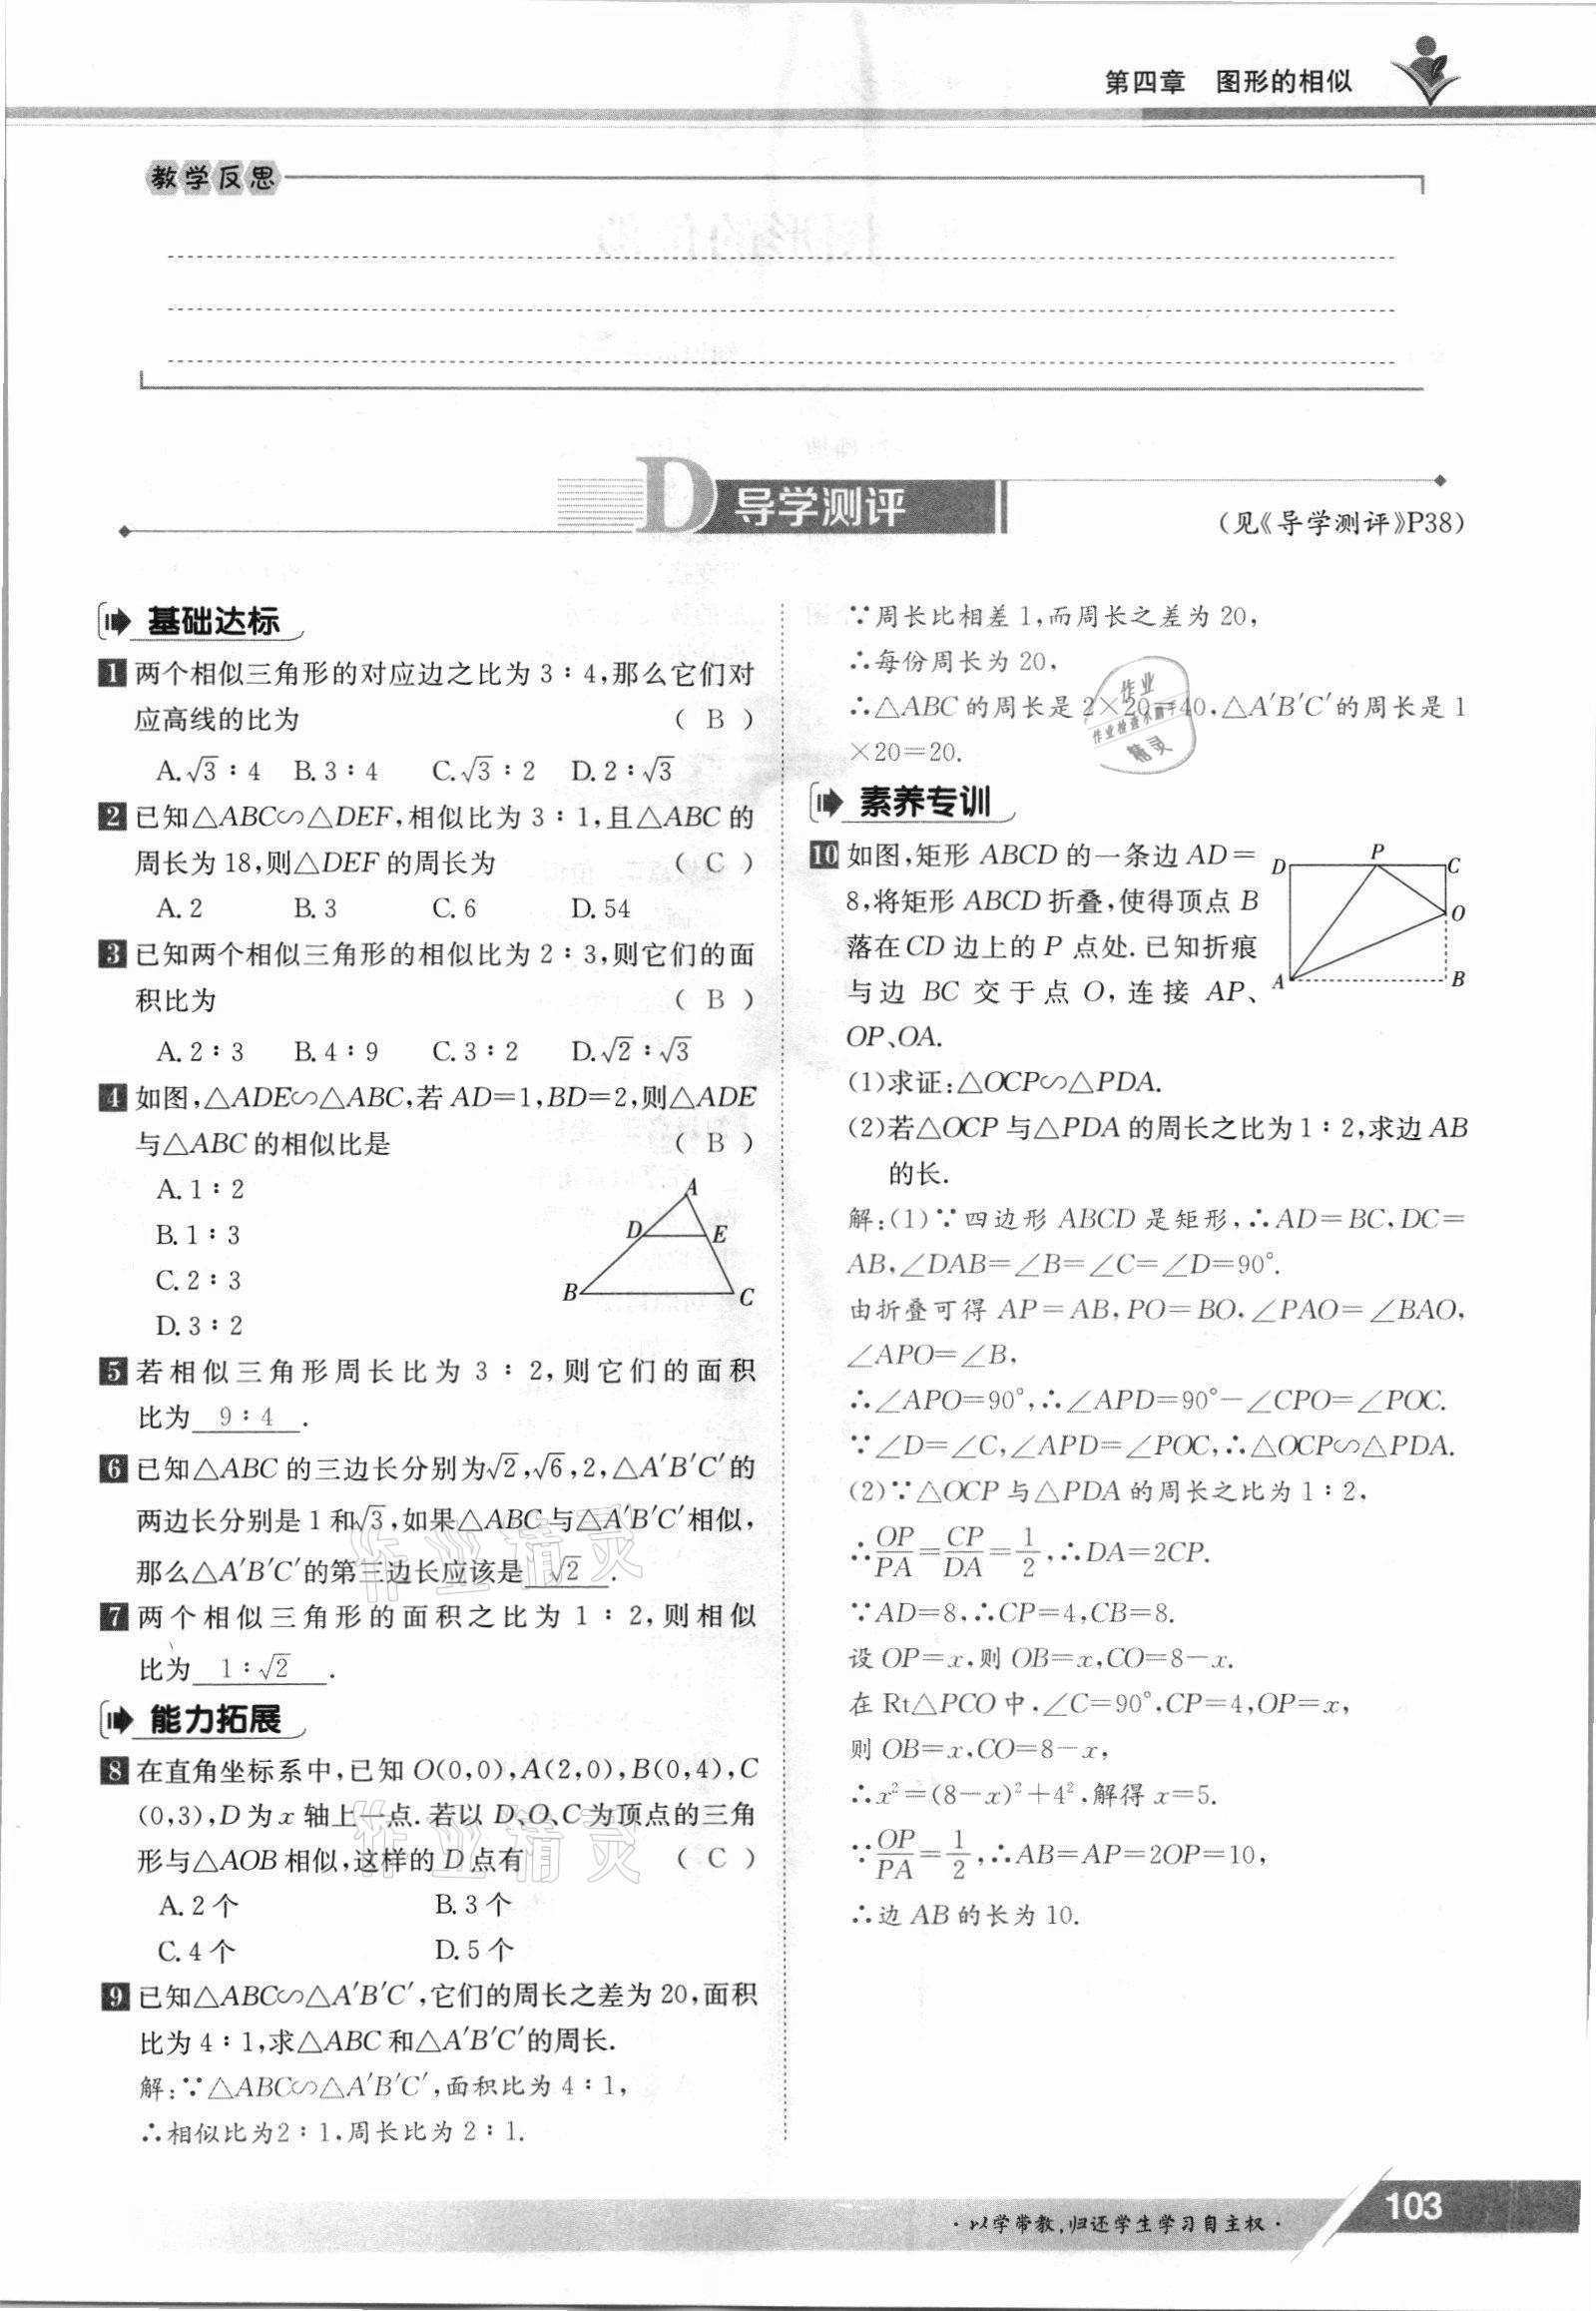 第四章 图形的相似
教学反思
D 导学测评
(见《导学测评》P38)
基础达标
1 两个相似三角形的对应边之比为 3∶4,那么它们对
应高线的比为 ( B )
A.√3∶4 B.3∶4 C.√3∶2 D.2∶√3
2 已知△ABC∽△DEF,相似比为 3∶1,且△ABC 的
周长为 18,则△DEF 的周长为 ( C )
A.2 B.3 C.6 D.54
3 已知两个相似三角形的相似比为 2∶3,则它们的面
积比为 ( B )
A.2∶3 B.4∶9 C.3∶2 D.√2∶√3
4 如图,△ADE∽△ABC,若 AD=1,BD=2,则△ADE
与△ABC 的相似比是 ( B )
A.1∶2
B.1∶3
C.2∶3
D.3∶2
A
D E
B C
5 若相似三角形周长比为 3∶2,则它们的面积
比为 9∶4 .
6 已知△ABC 的三边长分别为√2,√6,2,△A′B′C′的
两边长分别是 1 和√3,如果△ABC 与△A′B′C′相似,
那么△A′B′C′的第三边长应该是 √2 .
7 两个相似三角形的面积之比为 1∶2,则相似
比为 1∶√2 .
能力拓展
8 在直角坐标系中,已知 O(0,0),A(2,0),B(0,4),C
(0,3),D 为 x 轴上一点.若以 D、O、C 为顶点的三角
形与△AOB 相似,这样的 D 点有 ( C )
A.2 个 B.3 个
C.4 个 D.5 个
9 已知△ABC∽△A′B′C′,它们的周长之差为 20,面积
比为 4∶1,求△ABC 和△A′B′C′的周长.
解:∵△ABC∽△A′B′C′,面积比为 4∶1,
∴相似比为2∶1,周长比为 2∶1.
∵周长比相差 1,而周长之差为 20,
∴每份周长为 20,
∴△ABC 的周长是 2×20=40,△A′B′C′的周长是 1
×20=20.
素养专训
10 如图,矩形 ABCD 的一条边 AD=
8,将矩形 ABCD 折叠,使得顶点 B
落在 CD 边上的 P 点处.已知折痕
与边 BC 交于点 O,连接 AP、
OP、OA.
D P C
O
A B
(1)求证:△OCP∽△PDA.
(2)若△OCP 与△PDA 的周长之比为 1∶2,求边 AB
的长.
解:(1)∵四边形 ABCD 是矩形,∴AD=BC,DC=
AB,∠DAB=∠B=∠C=∠D=90°.
由折叠可得 AP=AB,PO=BO,∠PAO=∠BAO,
∠APO=∠B,
∴∠APO=90°,∴∠APD=90°−∠CPO=∠POC.
∵∠D=∠C,∠APD=∠POC,∴△OCP∽△PDA.
(2)∵△OCP 与△PDA 的周长之比为 1∶2,
∴OP/PA=CP/DA=1/2,∴DA=2CP.
∵AD=8,∴CP=4,CB=8.
设 OP=x,则 OB=x,CO=8−x.
在 Rt△PCO 中,∠C=90°,CP=4,OP=x,
则 OB=x,CO=8−x,
∴x²=(8−x)²+4²,解得 x=5.
∵OP/PA=1/2,∴AB=AP=2OP=10,
∴边 AB 的长为 10.
作业精灵
作业精灵
作业
作业检查小助手
精灵
·以学带教,归还学生学习自主权·
103